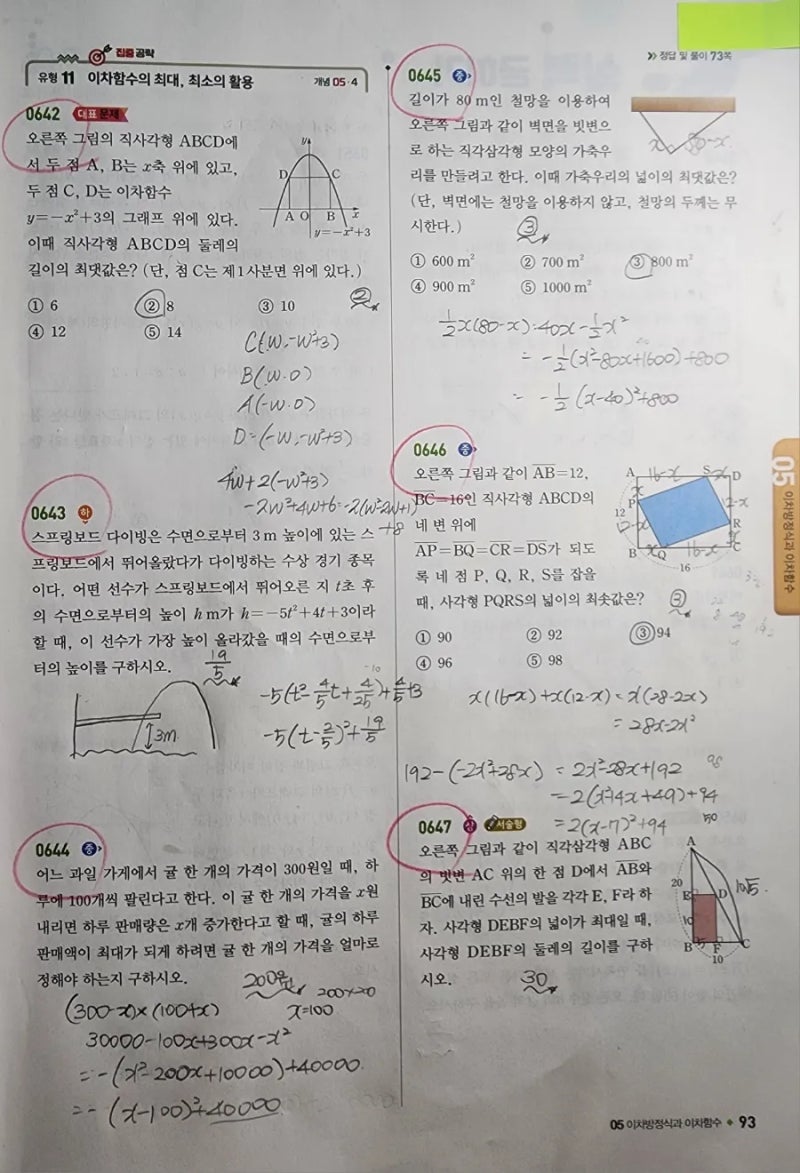 집중공략
유형 11 이차함수의 최대, 최소의 활용 개념 05·4
0642 대표 문제
오른쪽 그림의 직사각형 ABCD에
서 두 점 A, B는 x축 위에 있고,
두 점 C, D는 이차함수
y=-x²+3의 그래프 위에 있다.
이때 직사각형 ABCD의 둘레의
길이의 최댓값은? (단, 점 C는 제1사분면 위에 있다.)
y
D C
A O B x
y=-x²+3
① 6 ② 8 ③ 10 ②
④ 12 ⑤ 14
C(w, -w²+3)
B(w.0)
A(-w.0)
D=(-w, -w²+3)
4w+2(-w²+3)
-2w²+4w+6=-2(w²-2w+1)
+8
0643 하
스프링보드 다이빙은 수면으로부터 3 m 높이에 있는 스
프링보드에서 뛰어올랐다가 다이빙하는 수상 경기 종목
이다. 어떤 선수가 스프링보드에서 뛰어오른 지 t초 후
의 수면으로부터의 높이 h m가 h=-5t²+4t+3이라
할 때, 이 선수가 가장 높이 올라갔을 때의 수면으로부
터의 높이를 구하시오. 19/5
3m
-5(t²-4/5t+4/25)+4/5+3
-5(t-2/5)²+19/5
0644 중
어느 과일 가게에서 귤 한 개의 가격이 300원일 때, 하
루에 100개씩 팔린다고 한다. 이 귤 한 개의 가격을 x원
내리면 하루 판매량은 x개 증가한다고 할 때, 귤의 하루
판매액이 최대가 되게 하려면 귤 한 개의 가격을 얼마로
정해야 하는지 구하시오.
200원
200×200
(300-x)×(100+x) x=100
30000-100x+300x-x²
=-(x²-200x+10000)+40000
=-(x-100)²+40000
정답 및 풀이 73쪽
0645 중
길이가 80 m인 철망을 이용하여
오른쪽 그림과 같이 벽면을 빗변으
로 하는 직각삼각형 모양의 가축우
리를 만들려고 한다. 이때 가축우리의 넓이의 최댓값은?
(단, 벽면에는 철망을 이용하지 않고, 철망의 두께는 무
시한다.) ③
x 80-x
① 600 m² ② 700 m² ③ 800 m²
④ 900 m² ⑤ 1000 m²
1/2x(80-x)=40x-1/2x²
=-1/2(x²-80x+1600)+800
=-1/2(x-40)²+800
0646 중
오른쪽 그림과 같이 AB=12,
BC=16인 직사각형 ABCD의
네 변 위에
AP=BQ=CR=DS가 되도
록 네 점 P, Q, R, S를 잡을
때, 사각형 PQRS의 넓이의 최솟값은? ③
A 16-x S x D
x
P 12-x
12 R
12-x x
B x Q 16-x C
16
① 90 ② 92 ③ 94
④ 96 ⑤ 98
x(16-x)+x(12-x)=x(28-2x)
=28x-2x²
192-(-2x²+28x)=2x²-28x+192
=2(x²-14x+49)+94
=2(x-7)²+94
98
0647 상 서술형
오른쪽 그림과 같이 직각삼각형 ABC
의 빗변 AC 위의 한 점 D에서 AB와
BC에 내린 수선의 발을 각각 E, F라 하
자. 사각형 DEBF의 넓이가 최대일 때,
사각형 DEBF의 둘레의 길이를 구하
시오. 30
A
20
E D
10
B 5 F C
10
05
이차방정식과 이차함수
05 이차방정식과 이차함수 93